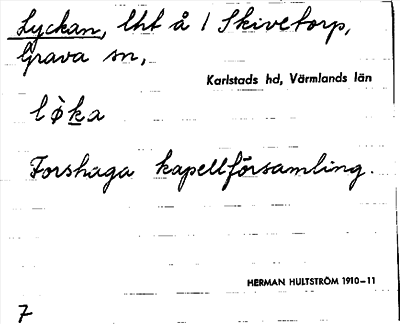 Lyckan, lht å 1 Skivetorp,
Grava sn,
Karlstads hd, Värmlands län
Forshaga kapellförsamling.
HERMAN HULTSTRÖM 1910–11
7